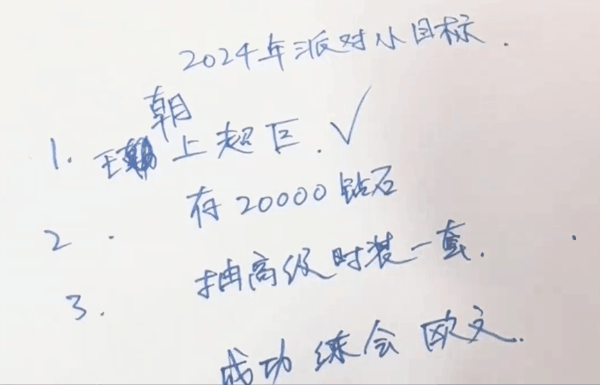 2024年派对小目标.
1. 王朝上超巨. ✓
2. 存20000钻石
3. 抽高级时装一套.
成功练会欧文.